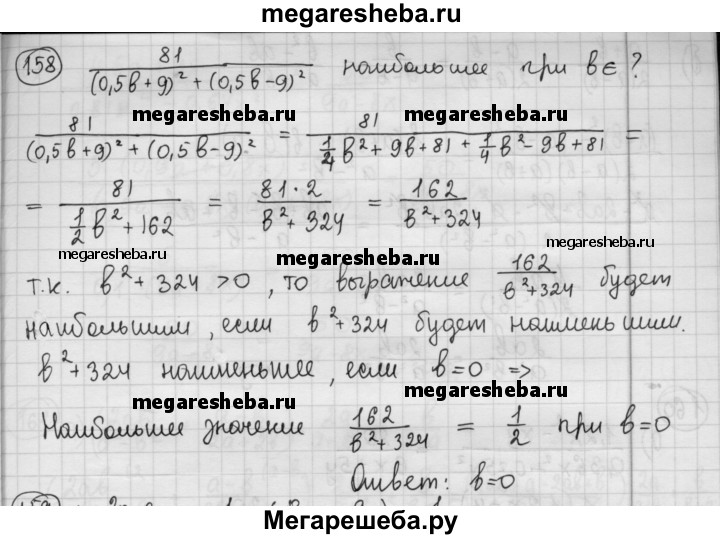 megaresheba.ru
158 81/((0,5в+9)² + (0,5в-9)²) наибольшее при вє ?
megaresheba.ru megaresheba.ru
81/((0,5в+9)² + (0,5в-9)²) = 81/(1/4 в² + 9в + 81 + 1/4 в² - 9в + 81) =
= 81/(1/2 в² + 162) = 81·2/(в² + 324) = 162/(в² + 324)
megaresheba.ru megaresheba.ru megaresheba.ru
т.к. в² + 324 > 0, то выражение 162/(в²+324) будет
наибольшим, если в² + 324 будет наименьшим.
в² + 324 наименьшее, если в=0 =>
megaresheba.ru megaresheba.ru
Наибольшее значение 162/(в²+324) = 1/2 при в=0
megaresheba.ru
Ответ: в=0
159
Мегарешеба.ру